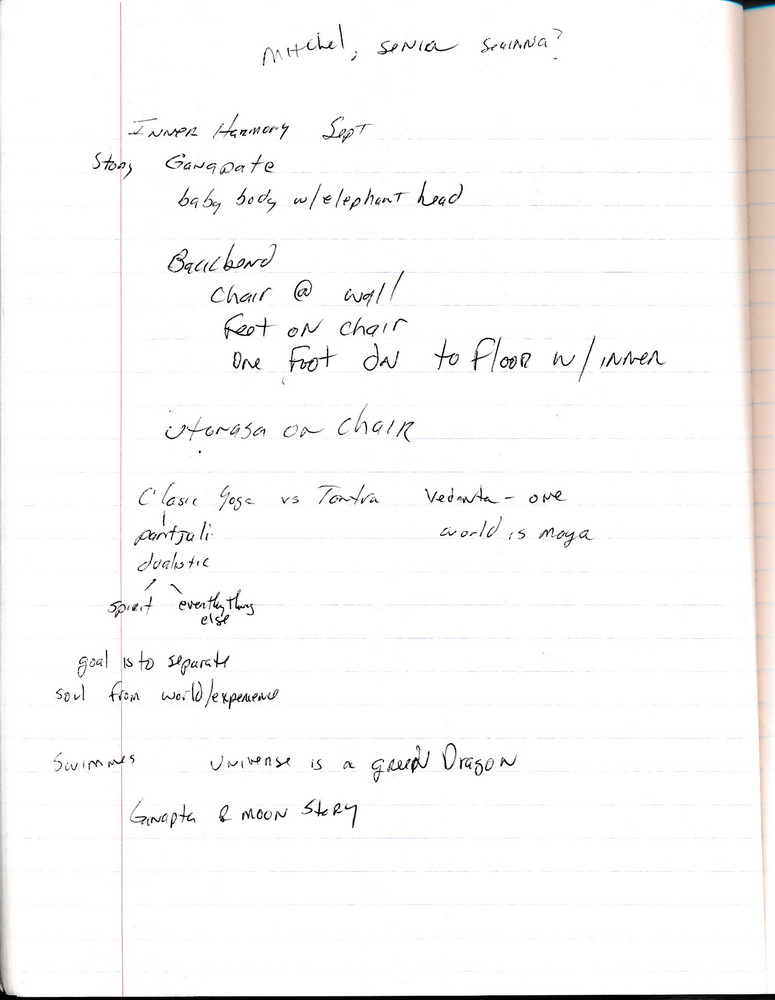 Mitchel, senia seuinna?
Inner Harmony Sept
Story Ganapate
baby body w/elephant head
Backbend
Chair @ wall
feet on chair
one foot dn to floor w/inner
uttonasa on chair
Clasic Yoga vs Tantra Vedanta - one
pantjali world is maya
dualistic
spirit everthything
else
goal is to separate
soul from world/experience
Swimmes Universe is a green Dragon
Ganapta & moon story